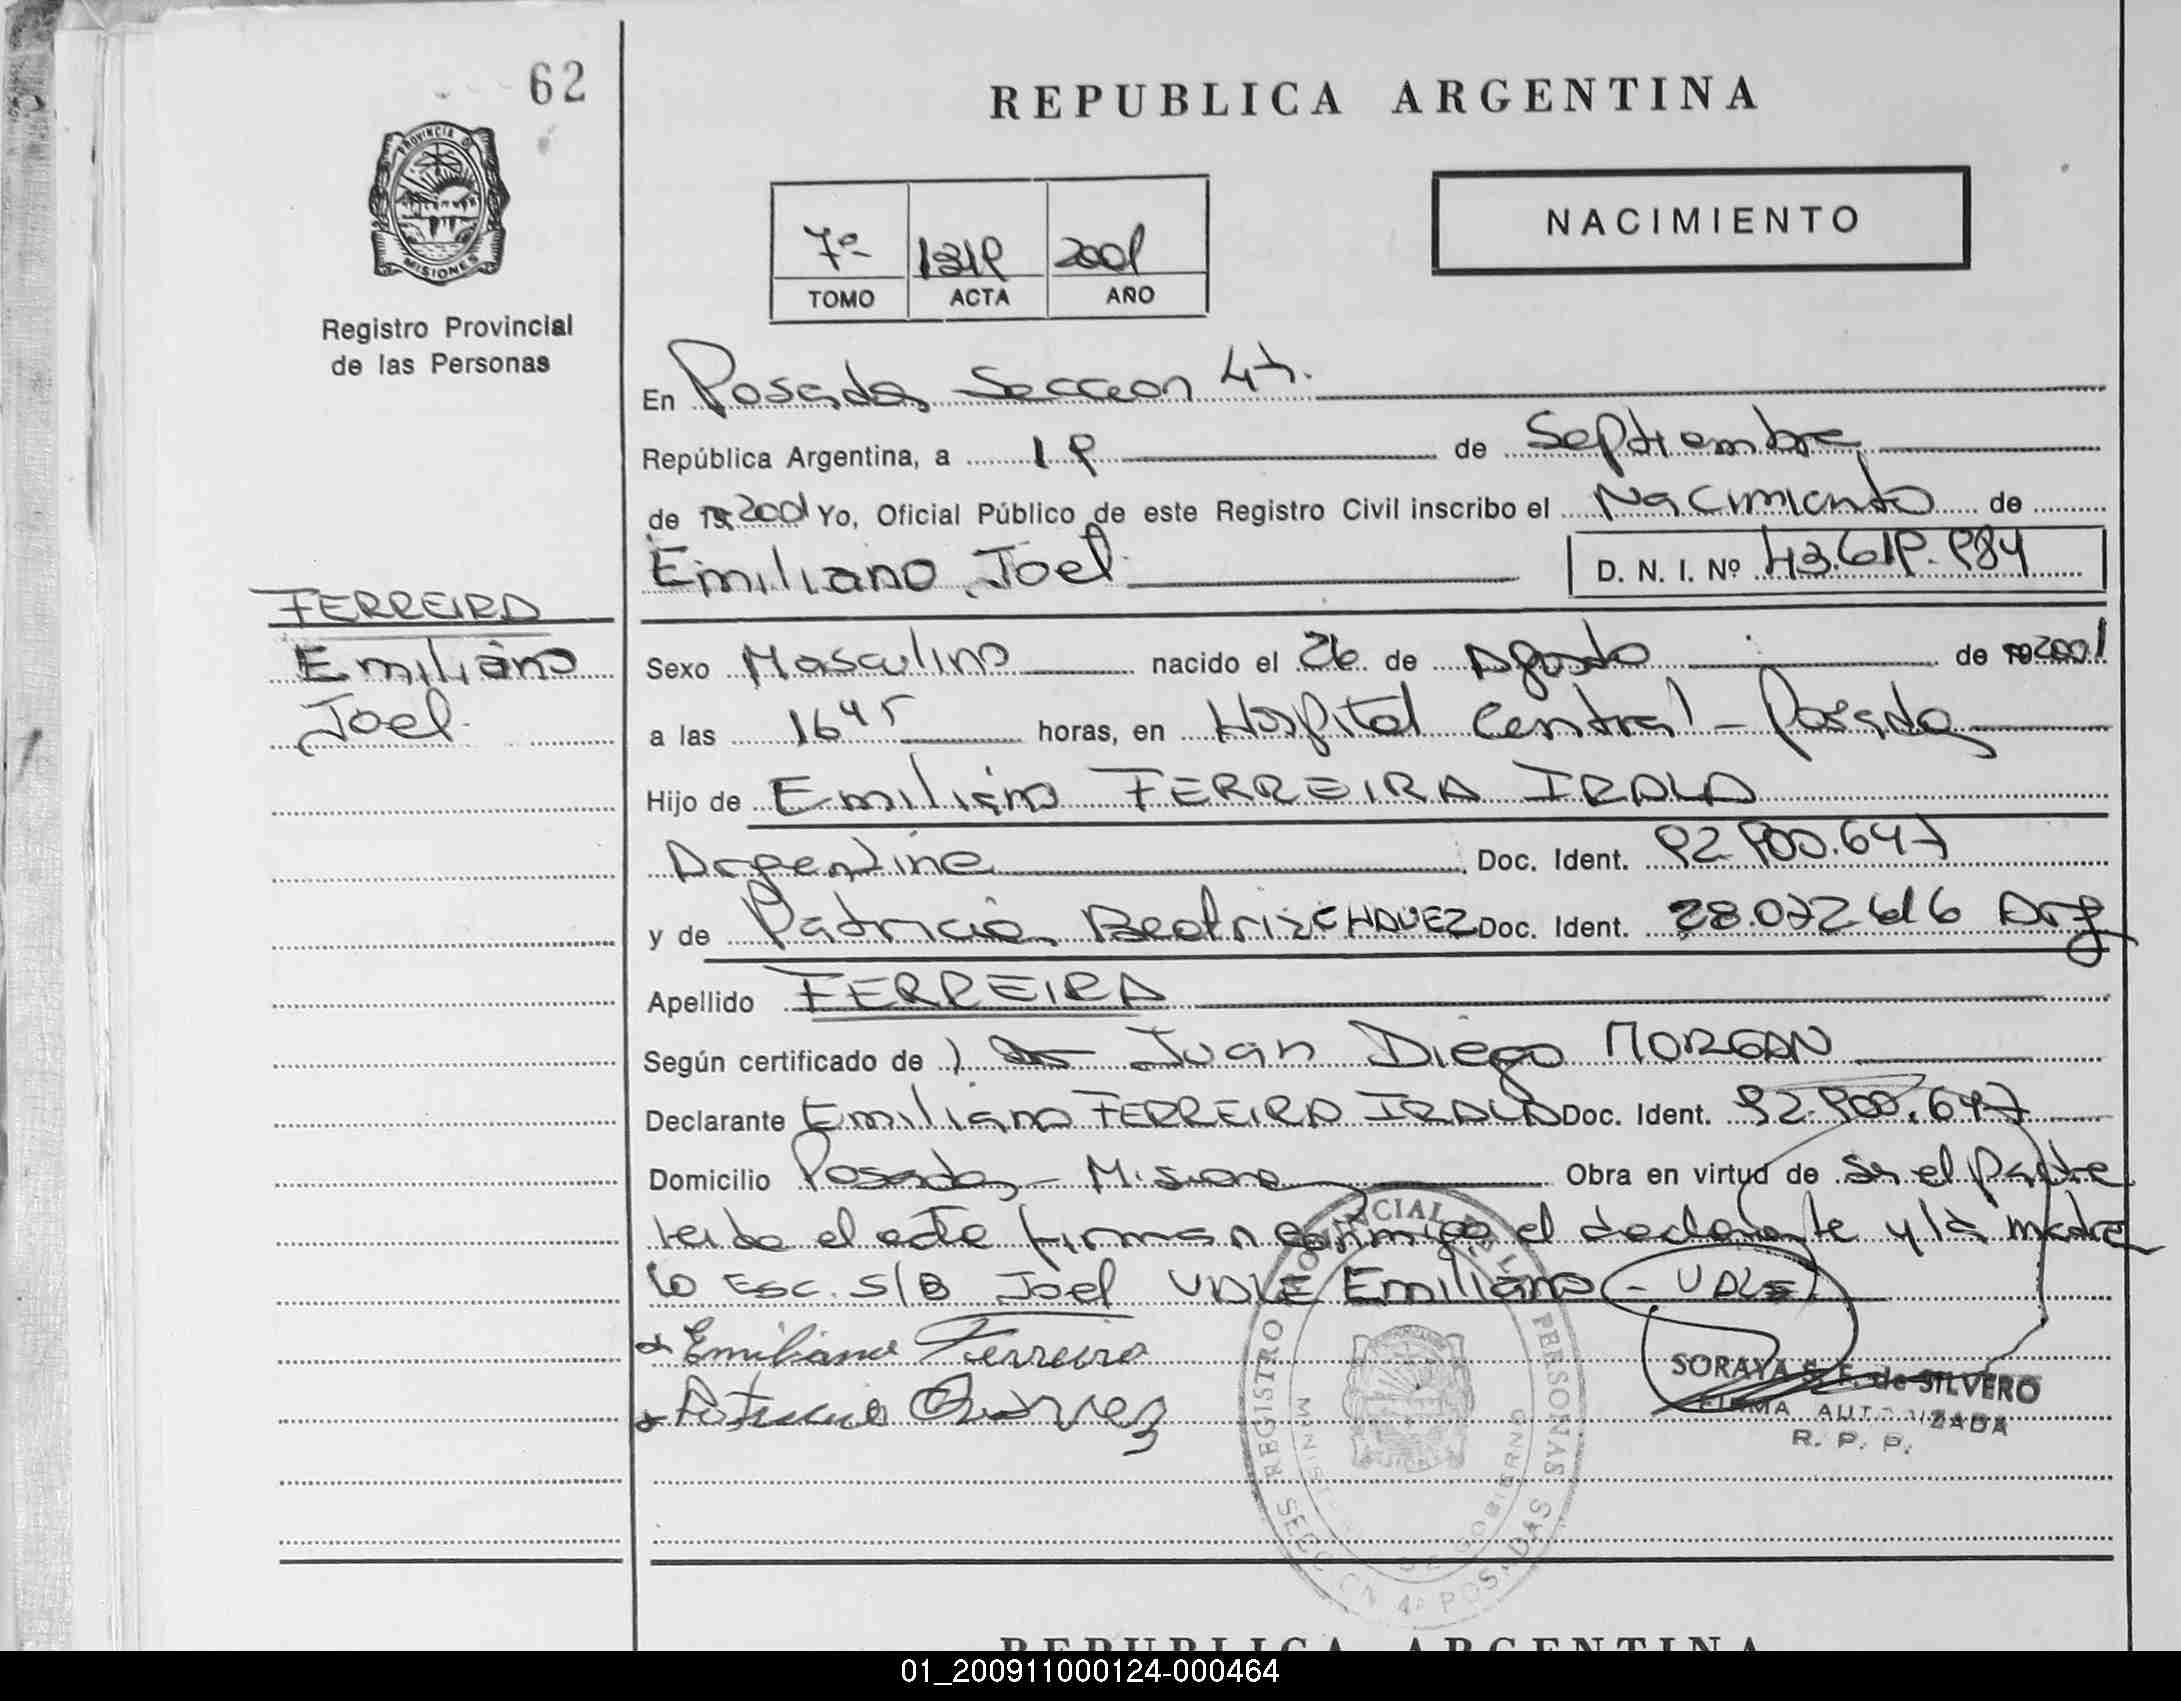 62
REPUBLICA ARGENTINA
PROVINCIA D
MISIONES
Registro Provincial
de las Personas
NACIMIENTO
7º 1319 2001
TOMO ACTA AÑO
En Posadas Seccion 4ta.
República Argentina, a 19 de Septiembre
de 19 2001 Yo, Oficial Público de este Registro Civil inscribo el Nacimiento de
Emiliano Joel D. N. I. Nº 43.619.984
FERREIRA
Emiliano
Joel
Sexo Masculino nacido el 26 de Agosto de 19 2001
a las 16 45 horas, en Hospital Central - Posadas
Hijo de Emiliano FERREIRA IRALA
Argentine Doc. Ident. 92.900.647
y de Patricia Beatriz CHAVEZ Doc. Ident. 28.072.616 Arg
Apellido FERREIRA
Según certificado de Juan Diego MORGAN
Declarante Emiliano FERREIRA IRALA Doc. Ident. 92.900.647
Domicilio Posadas - Misiones Obra en virtud de Ser el Padre
leida el acta firman conmigo el declarante y la madre
lo Esc. S/B Joel VALE Emiliano - VALE
Emiliano Ferreira
Patricia Chavez
SORAYA S. F. de SILVERO
FIRMA AUTORIZADA
R. P. P.
REGISTRO PROVINCIAL DE LAS PERSONAS
MINISTERIO DE GOBIERNO
SECCION 4ª POSADAS
REPUBLICA ARGENTINA
01_200911000124-000464